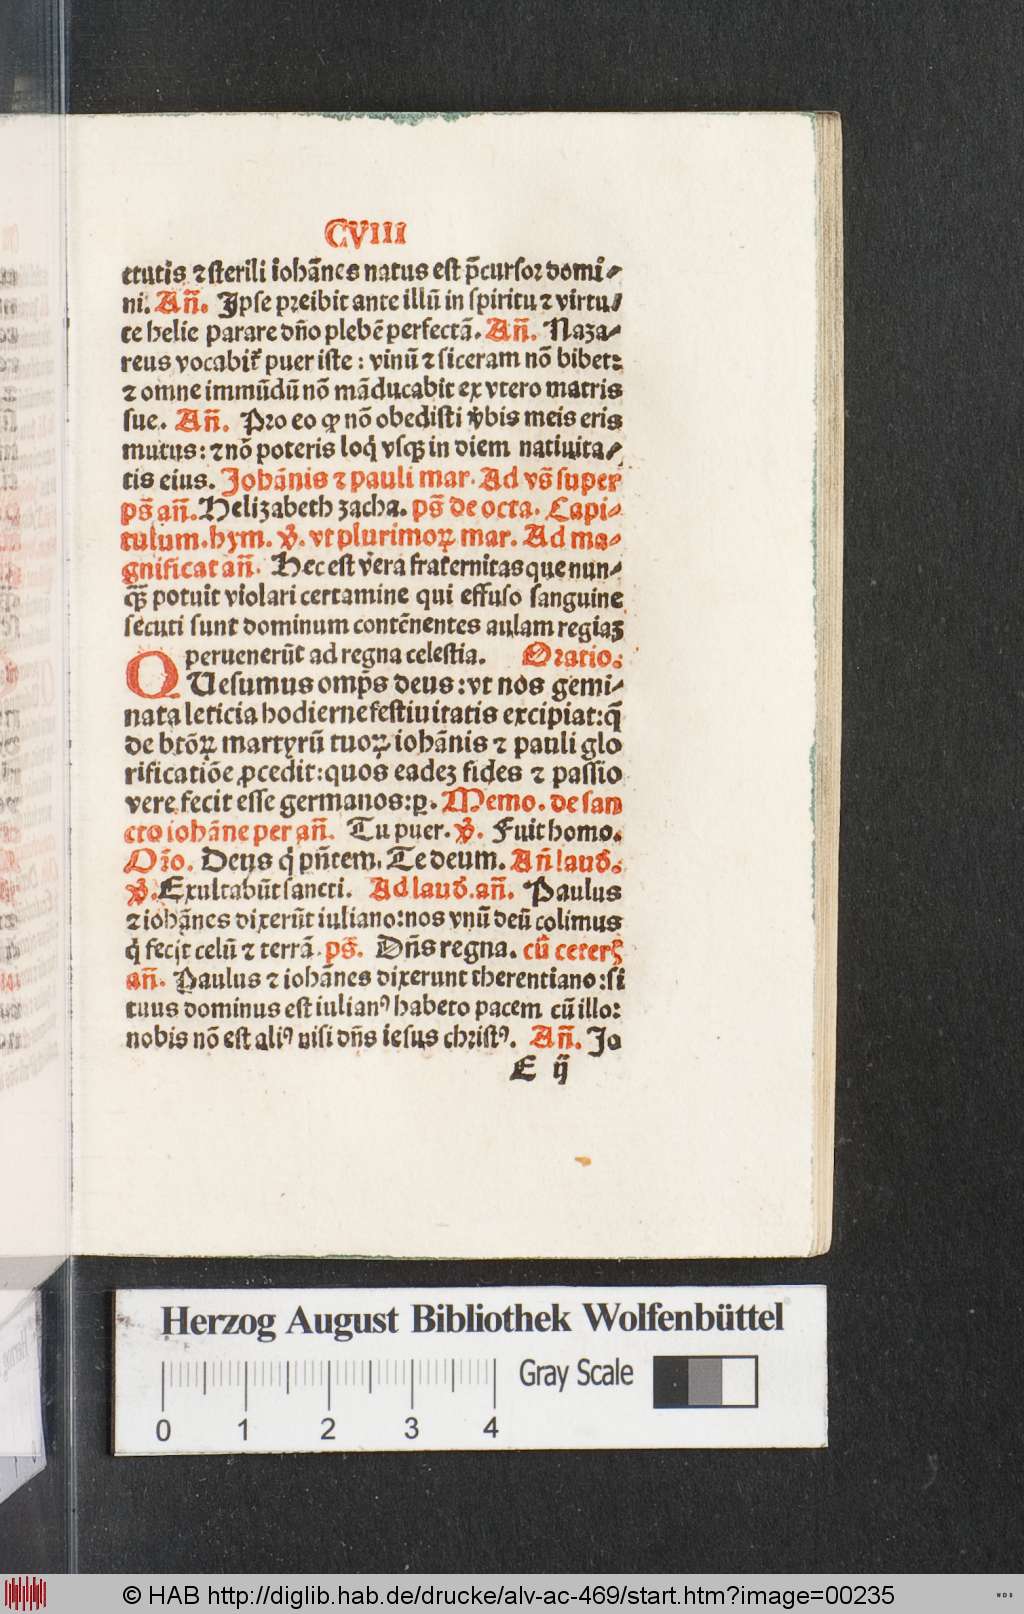 CVIII
ctutis ⁊ sterili iohānes natus est p̄cursor domi⸗
ni. Añ. Ipse preibit ante illū in spiritu ⁊ virtu⸗
te helie parare dn̄o plebē perfectā. Añ. Naza⸗
reus vocabit᷑ puer iste : vinū ⁊ siceram nō bibet:
⁊ omne immūdū nō māducabit ex vtero matris
sue. Añ. Pro eo ꝙ nō obedisti v̄bis meis eris
mutus: ⁊ nō poteris loq̇ vsqꝫ in diem natiuita⸗
tis eius. Johānis ⁊ pauli mar. Ad vs̄ super
ps̄ añ. Helizabeth zacha. ps̄ de octa. Capi⸗
tulum. hym. ℣. vt plurimoꝝ mar. Ad ma⸗
gnificat añ. Hec est vera fraternitas que nun⸗
q̄ꝫ potuit violari certamine qui effuso sanguine
secuti sunt dominum contēnentes aulam regiaꝫ
peruenerūt ad regna celestia. Oratio.
QUesumus omp̄s deus: vt nos gemi⸗
nata leticia hodierne festiuitatis excipiat: q̄
de btōꝝ martyrū tuoꝝ iohānis ⁊ pauli glo
rificatiōe ꝓcedit: quos eadeꝫ fides ⁊ passio
vere fecit esse germanos: ꝑ. Memo. de san
cto iohāne per añ. Tu puer. ℣. Fuit homo.
Or̄o. Deus q̇ pn̄tem. Te deum. Añ laud̄.
℣. Exultabūt sancti. Ad laud̄. añ. Paulus
⁊ iohānes dixerūt iuliano: nos vnū deū colimus
q̇ fecit celū ⁊ terrā. ps̄. Dn̄s regna. cū ceterꝭ
añ. Paulus ⁊ iohānes dixerunt therentiano: si
tuus dominus est iulianꝰ habeto pacem cū illo:
nobis nō est aliꝰ nisi dn̄s iesus christꝰ. Añ. Jo
E ij
Herzog August Bibliothek Wolfenbüttel
Gray Scale
0 1 2 3 4
© HAB http://diglib.hab.de/drucke/alv-ac-469/start.htm?image=00235